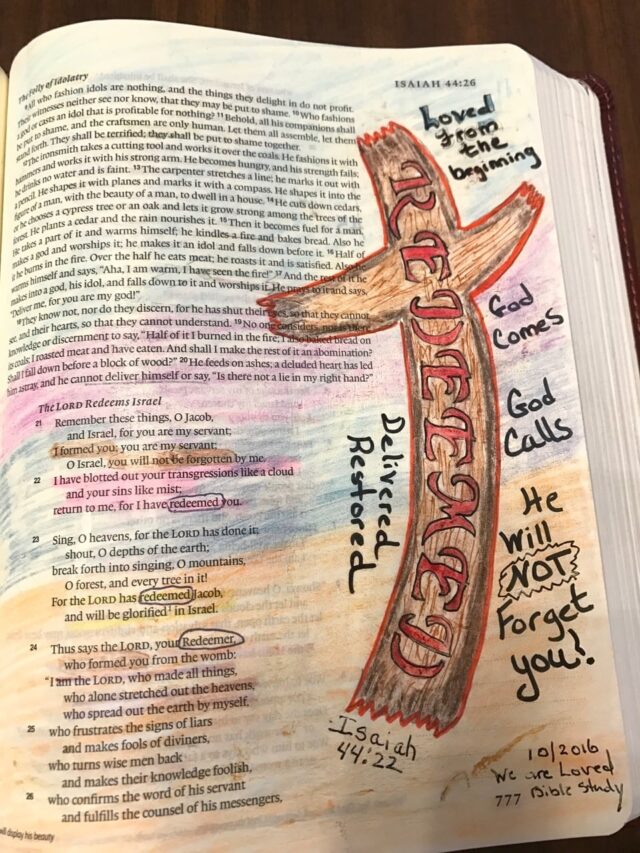 The Folly of Idolatry
ISAIAH 44:26
9 All who fashion idols are nothing, and the things they delight in do not profit.
Their witnesses neither see nor know, that they may be put to shame. 10 Who fashions
a god or casts an idol that is profitable for nothing? 11 Behold, all his companions shall
be put to shame, and the craftsmen are only human. Let them all assemble, let them
stand forth. They shall be terrified; they shall be put to shame together.
12 The ironsmith takes a cutting tool and works it over the coals. He fashions it with
hammers and works it with his strong arm. He becomes hungry, and his strength fails;
he drinks no water and is faint. 13 The carpenter stretches a line; he marks it out with
a pencil. He shapes it with planes and marks it with a compass. He shapes it into the
figure of a man, with the beauty of a man, to dwell in a house. 14 He cuts down cedars,
or he chooses a cypress tree or an oak and lets it grow strong among the trees of the
forest. He plants a cedar and the rain nourishes it. 15 Then it becomes fuel for a man.
He takes a part of it and warms himself; he kindles a fire and bakes bread. Also he
makes a god and worships it; he makes it an idol and falls down before it. 16 Half of
it he burns in the fire. Over the half he eats meat; he roasts it and is satisfied. Also he
warms himself and says, "Aha, I am warm, I have seen the fire!" 17 And the rest of it he
makes into a god, his idol, and falls down to it and worships it. He prays to it and says,
"Deliver me, for you are my god!"
18 They know not, nor do they discern, for he has shut their eyes, so that they cannot
see, and their hearts, so that they cannot understand. 19 No one considers, nor is there
knowledge or discernment to say, "Half of it I burned in the fire; I also baked bread on
its coals; I roasted meat and have eaten. And shall I make the rest of it an abomination?
Shall I fall down before a block of wood?" 20 He feeds on ashes; a deluded heart has led
him astray, and he cannot deliver himself or say, "Is there not a lie in my right hand?"
The LORD Redeems Israel
21 Remember these things, O Jacob,
and Israel, for you are my servant;
I formed you; you are my servant;
O Israel, you will not be forgotten by me.
22 I have blotted out your transgressions like a cloud
and your sins like mist;
return to me, for I have redeemed you.
23 Sing, O heavens, for the LORD has done it;
shout, O depths of the earth;
break forth into singing, O mountains,
O forest, and every tree in it!
For the LORD has redeemed Jacob,
and will be glorified1 in Israel.
24 Thus says the LORD, your Redeemer,
who formed you from the womb:
"I am the LORD, who made all things,
who alone stretched out the heavens,
who spread out the earth by myself,
25 who frustrates the signs of liars
and makes fools of diviners,
who turns wise men back
and makes their knowledge foolish,
26 who confirms the word of his servant
and fulfills the counsel of his messengers,
will display his beauty
Loved
from
the
beginning
REDEEMED
God
Comes
God
Calls
Delivered
Restored
He
Will
NOT
Forget
you!
Isaiah
44:22
10/2016
We are Loved
Bible Study
777